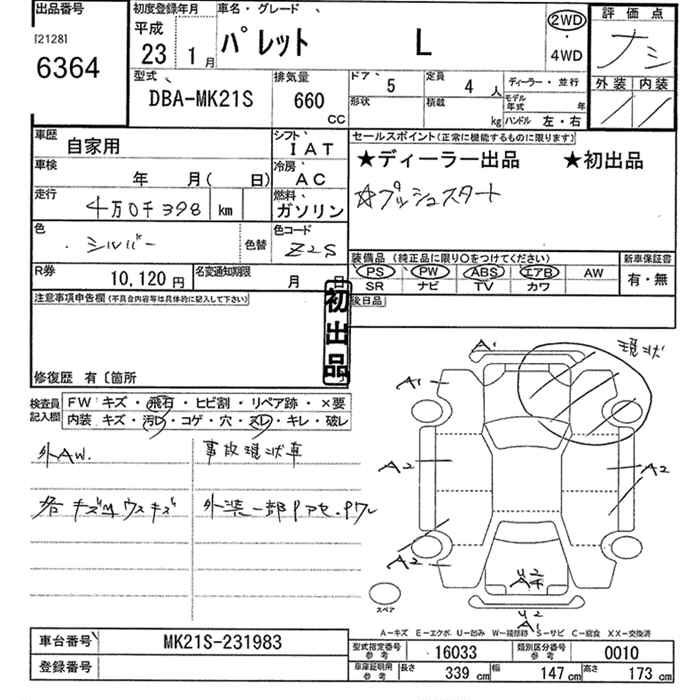 出品番号 初度登録年月 車名・グレード 評価点
[2128] 平成 パレット L 2WD ・ 4WD ナシ
6364 23 1月 外装 内装
型式 DBA-MK21S 排気量 660 CC ドア 5 定員 4人 ディーラー・並行
形状 積載 kg モデル年式 年
ハンドル 左・右
車歴 自家用 シフト IAT セールスポイント(正常に機能するものに限ります)
車検 年 月( 日) 冷房 AC ★ディーラー出品 ★初出品
走行 4万0千398 km 燃料 ガソリン ☆プッシュスタート
色 シルバー 色替 色コード Z2S
装備品(純正品に限り○をつけてください) 新車保証書
R券 10,120円 名変通知期限 月 日 PS PW ABS エアB AW 有・無
SR ナビ TV カワ
注意事項申告欄(不具合内容等は具体的に記入して下さい) 初出品 後日品
修復歴 有〔箇所
検査員記入欄 FW キズ・飛石・ヒビ割・リペア跡・×要
内装 キズ・汚レ・コゲ・穴・スレ・キレ・破レ
外AW. 事故現状車
各キズ ウスキズ 外装一部
現状
A1
A1
A2 A2
A2
U2
スペア
U2
A1
A－キズ E－エクボ U－凹ミ W－補修跡 S－サビ C－腐食 XX－交換済
車台番号 MK21S-231983 型式指定番号 参考 16033 類別区分番号 参考 0010
登録番号 車庫証明用 参考 長さ 339 cm 幅 147 cm 高さ 173 cm